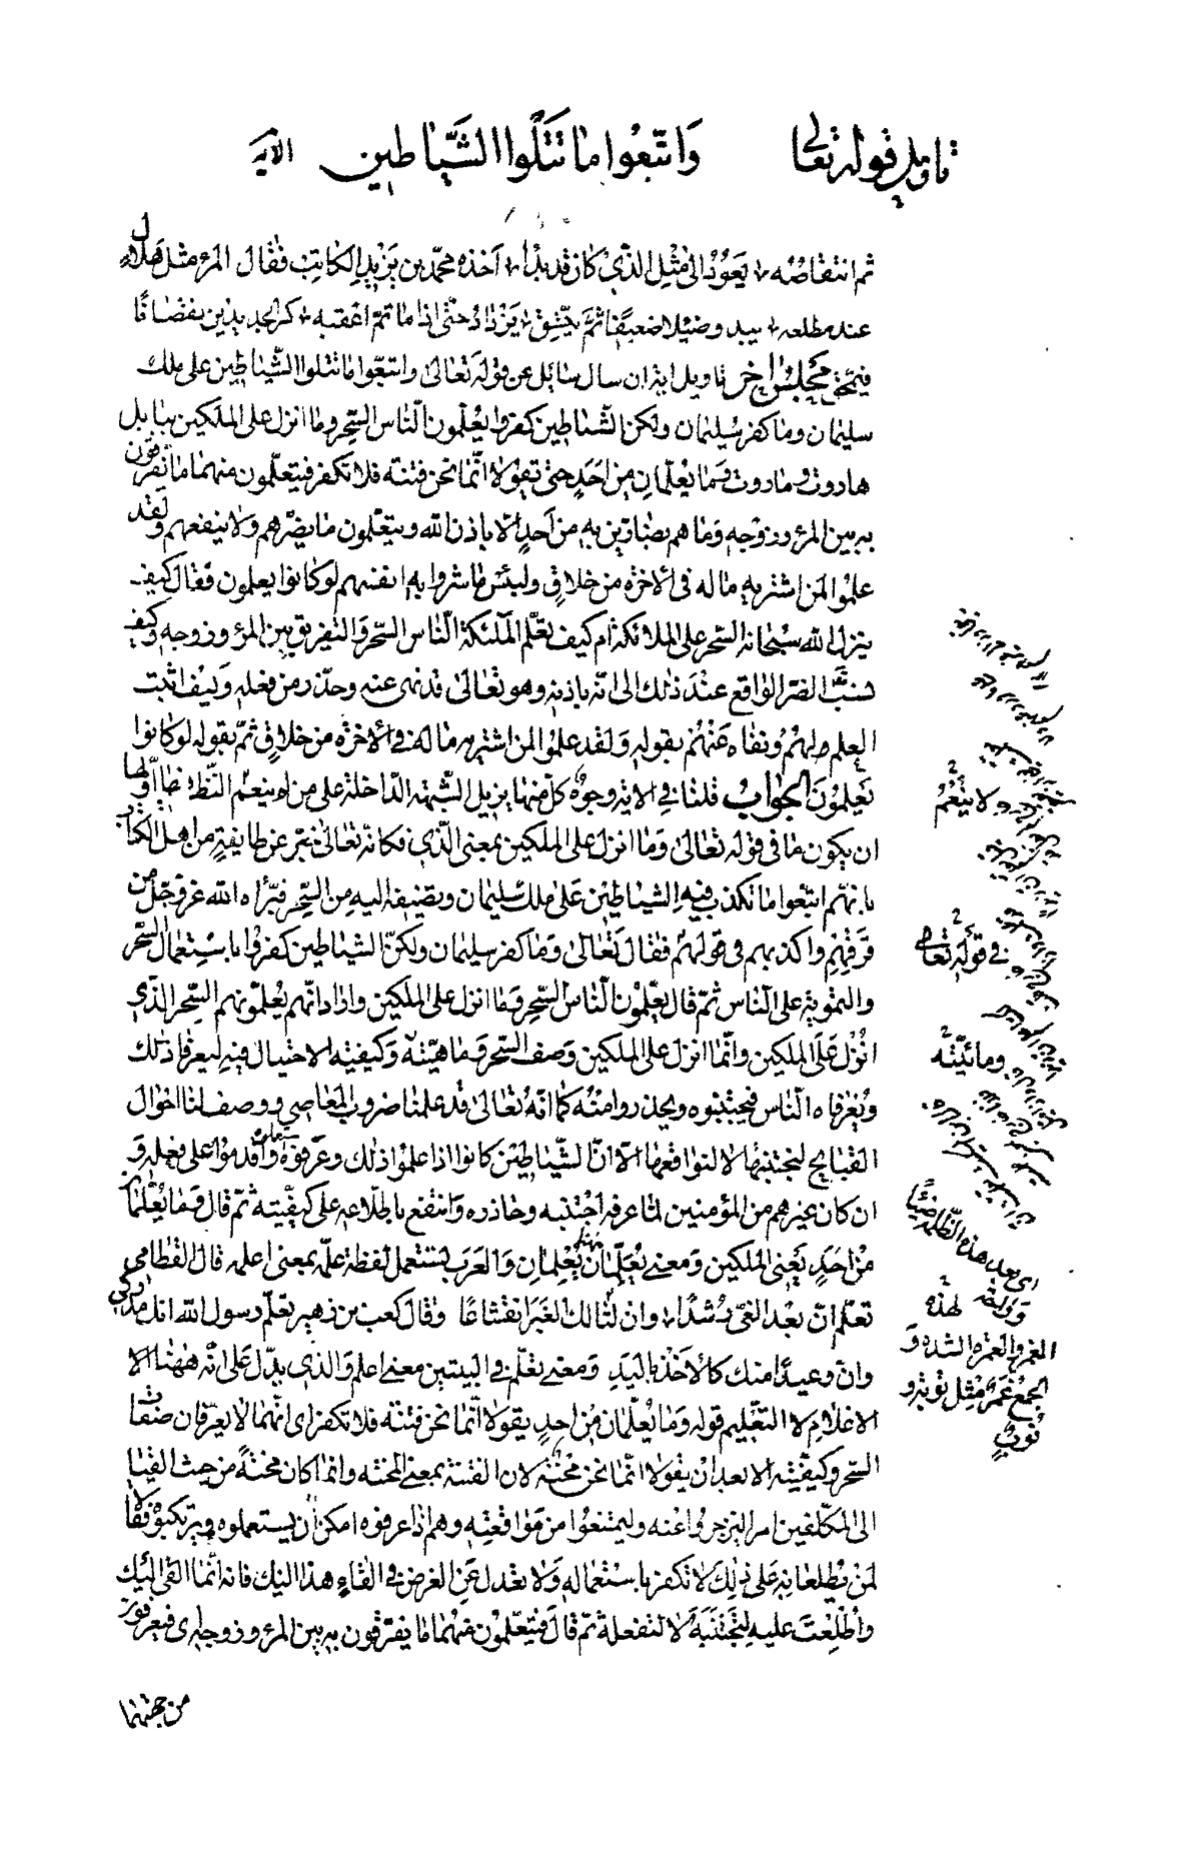 تاويل قوله تعالى واتبعوا ما تتلوا الشياطين الاية
ثم انتقاصه يعود الى مثل الذي كان قد بدا اخذه محمد بن يزيد الكاتب فقال المرء مثل هلال
عند مطلعه يبدو ضئيلا ضعيفا ثم يتسق يزداد حتى اذا ما تم اعقبه كر الجديدين نقصانا
فيمحق مجلس اخر تاويل اية ان سال سائل عن قوله تعالى واتبعوا ما تتلوا الشياطين على ملك
سليمان وما كفر سليمان ولكن الشياطين كفروا يعلمون الناس السحر وما انزل على الملكين ببابل
هاروت وماروت وما يعلمان من احد حتى يقولا انما نحن فتنة فلا تكفر فيتعلمون منهما ما يفرقون
به بين المرء وزوجه وما هم بضارين به من احد الا باذن الله ويتعلمون ما يضرهم ولا ينفعهم ولقد
علموا لمن اشتريه ما له في الاخرة من خلاق ولبئس ما شروا به انفسهم لو كانوا يعلمون فقال كيف
ينزل الله سبحانه السحر على الملائكة ام كيف تعلم الملئكة الناس السحر والتفريق بين المرء وزوجه وكيف
نسب الضرر الواقع عند ذلك الى انه باذنه وهو تعالى قد نهى عنه وحذر من فعله وكيف اثبت
العلم لهم ونفاه عنهم بقوله ولقد علموا لمن اشتريه ما له في الاخرة من خلاق ثم بقوله لو كانوا
يعلمون الجواب قلنا في الاية وجوه كل منها يزيل الشبهة الداخلة على من لم ينعم النظر فيها اولها
ان يكون ما في قوله تعالى وما انزل على الملكين بمعنى الذي فكانه تعالى خبر عن طايفة من اهل الكتاب
بانهم اتبعوا ما تكذب فيه الشياطين على ملك سليمان وتضيفه اليه من السحر فبراه الله عز وجل من
قرفهم واكذبهم في قولهم فقال تعالى وما كفر سليمان ولكن الشياطين كفروا باستعمال السحر
والتمويه على الناس ثم قال يعلمون الناس السحر وما انزل على الملكين واراد انهم يعلمونهم السحر الذي
انزل على الملكين وانما انزل على الملكين وصف السحر وماهيته وكيفية الاحتيال فيه ليعرفا ذلك
ويعرفاه الناس فيجتنبوه ويحذروا منه كما انه تعالى قد علمنا ضروب المعاصي ووصف لنا احوال
القبايح لنجتنبها لا لنواقعها الا ان الشياطين كانوا اذا علموا ذلك وعرفوه استعملوه واقدموا على فعله و
ان كان غيرهم من المؤمنين لما عرفه اجتنبه وحاذره وانتفع باطلاعه على كيفيته ثم قال وما يعلمان
من احد يعني الملكين ومعنى يعلمان يعلمان والعرب تستعمل لفظة علمه بمعنى اعلمه قال القطامي
تعلم ان بعد الغي رشدا وان لتالك الغبر انقشاعا وقال كعب بن زهير تعلم رسول الله انك مدركي
وان وعيدا منك كالاخذ باليد ومعنى تعلم في البيتين معنى اعلم والذي يدل على انه ههنا الا
الاعلام لا التعليم قوله وما يعلمان من احد يقولا انما نحن فتنة فلا تكفر اي انهما لا يعرفان صفات
السحر وكيفيته الا بعد ان يقولا انما نحن محنة لان الفتنة بمعنى المحنة وانما كان محنة من حيث القيا
الى المكلفين امرا لينزجروا عنه وليمتنعوا من مواقعته وهم اذا عرفوه امكن ان يستعملوه ويرتكبوه فقالا
لمن يطلعانه على ذلك لا تكفر باستعماله ولا تعدل عن الغرض في القاء هذا اليك فانه انما القي اليك
واطلعت عليه لتجتنبه لا لتفعله ثم قال فيتعلمون منهما ما يفرقون به بين المرء وزوجه اي فيعرفون
من جهتهما
لا ينعم
في قوله تعالى
ومائيته
اي بعد هذه الظلمة ضياء
لهذه
الغمر والغمرة الشدة و
الجمع غمر مثل نوبة و
نوب